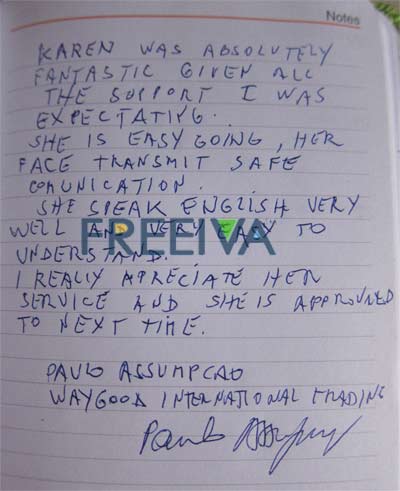 Notes
KAREN WAS ABSOLUTELY
FANTASTIC GIVEN ALL
THE SUPPORT I WAS
EXPECTATING.
SHE IS EASY GOING, HER
FACE TRANSMIT SAFE
COMUNICATION.
SHE SPEAK ENGLISH VERY
WELL AND VERY EASY TO
FREEIVA
UNDERSTAND.
I REALLY APRECIATE HER
SERVICE AND SHE IS APPROVNED
TO NEXT TIME.
PAULO ASSUMPCAO
WAYGOOD INTERNATIONAL TRADING